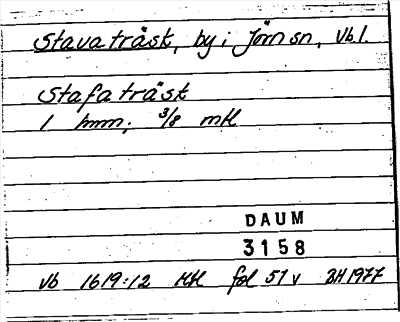 Stavaträsk, by i Jörn sn, Vbl.
Stafaträsk
1 hmn; 3/8 mtl
DAUM
3158
Vb 1619:12 Mtl fol 51 v BH 1977